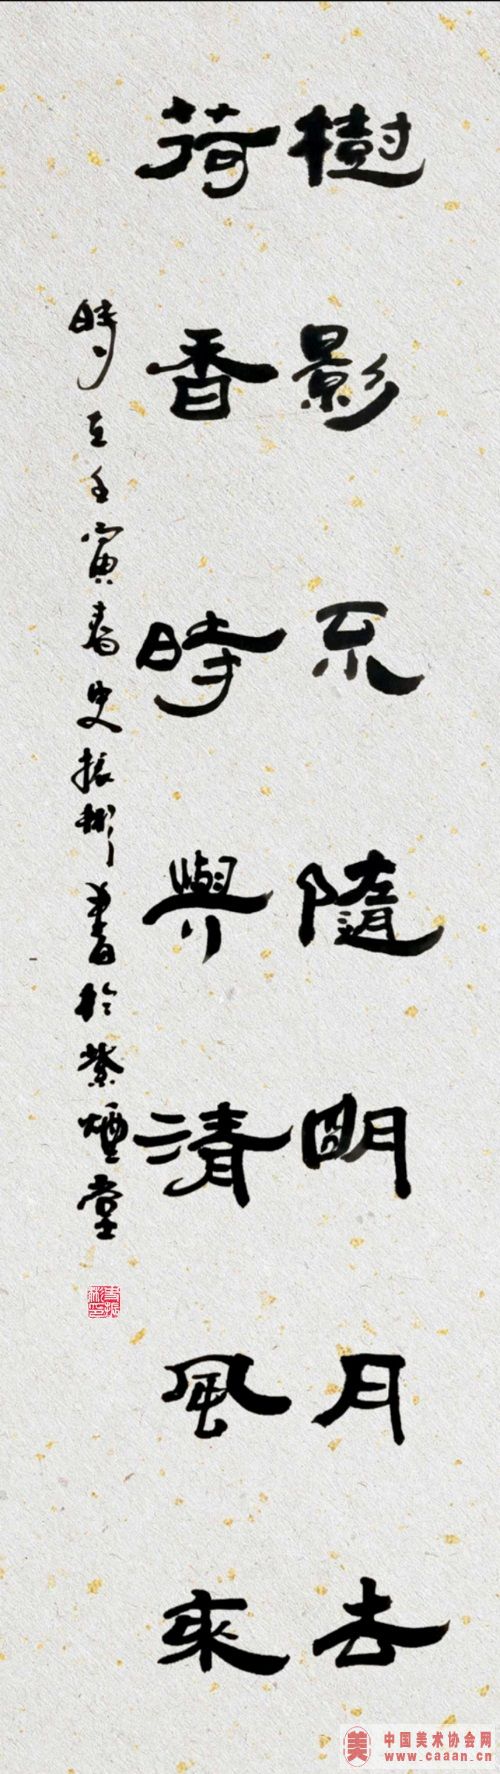 樹影不隨明月去
荷香時與清風來
時在壬寅春史振彬書於紫煙堂
中国美术协会网
www.caaan.cn